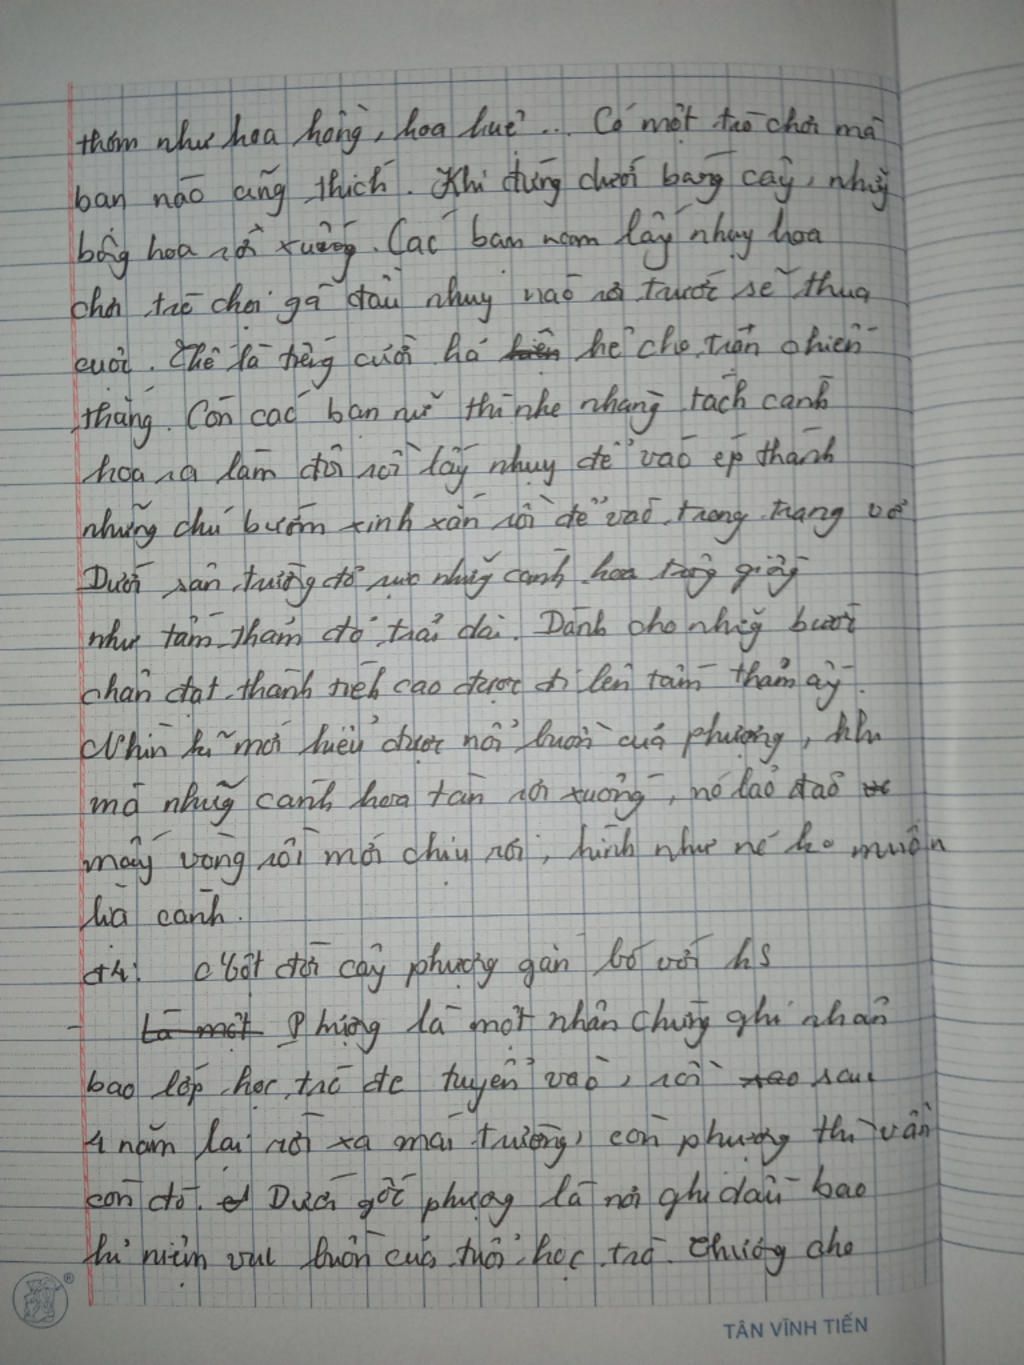 thơm như hoa hồng, hoa huệ... Có một trò chơi mà
bạn nào cũng thích. Khi đứng dưới bang cây, những
bông hoa rơi xuống. Các bạn nam lấy nhụy hoa
chơi trò chơi gà đấu nhụy nào rơi trước sẽ thua
cuộc. Thế là tiếng cười hả hê cho trận chiến
thắng. Còn các bạn nữ thì nhẹ nhàng tách cánh
hoa ra làm đôi rồi lấy nhụy để vào ép thành
những chú bướm xinh xắn rồi để vào trong trang vở
Dưới sân trường đỏ rực những cánh hoa trông giống
như tấm thảm đỏ trải dài. Dành cho những bước
chân đạt thành tích cao được đi lên tấm thảm ấy.
Nhìn kĩ mới hiểu được nỗi buồn của phượng, khi
mà những cánh hoa tàn rơi xuống, nó lảo đảo
mấy vòng rồi mới chịu rơi, hình như nó ko muốn
lìa cành.
Đ4: Cuộc đời cây phượng gắn bó với hs
- Phượng là một nhân chứng ghi nhận
bao lớp học trò đc tuyển vào, rồi sau
4 năm lại rời xa mái trường, còn phượng thì vẫn
còn đó. Dưới gốc phượng là nơi ghi dấu bao
kỉ niệm vui buồn của tuổi học trò. Chướng cho
TÂN VĨNH TIẾN